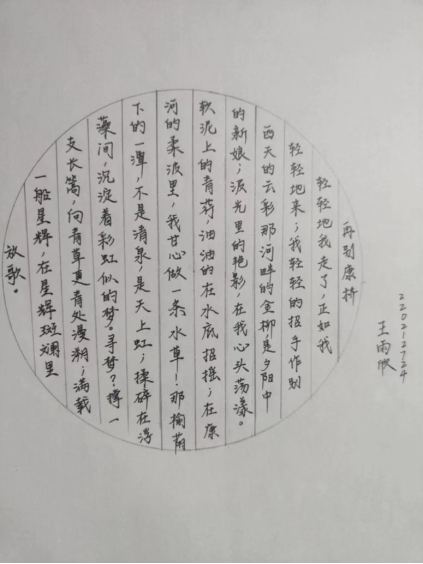 再别康桥
轻轻地我走了，正如我
轻轻地来；我轻轻的招手作别
西天的云彩那河畔的金柳是夕阳中
的新娘；波光里的艳影，在我心头荡漾。
软泥上的青荇，油油的在水底招摇；在康
河的柔波里，我甘心做一条水草！那榆荫
下的一潭，不是清泉，是天上虹；揉碎在浮
藻间，沉淀着彩虹似的梦。寻梦？撑一
支长篙，向青草更青处漫溯；满载
一船星辉，在星辉斑斓里
放歌。
220212724
王雨